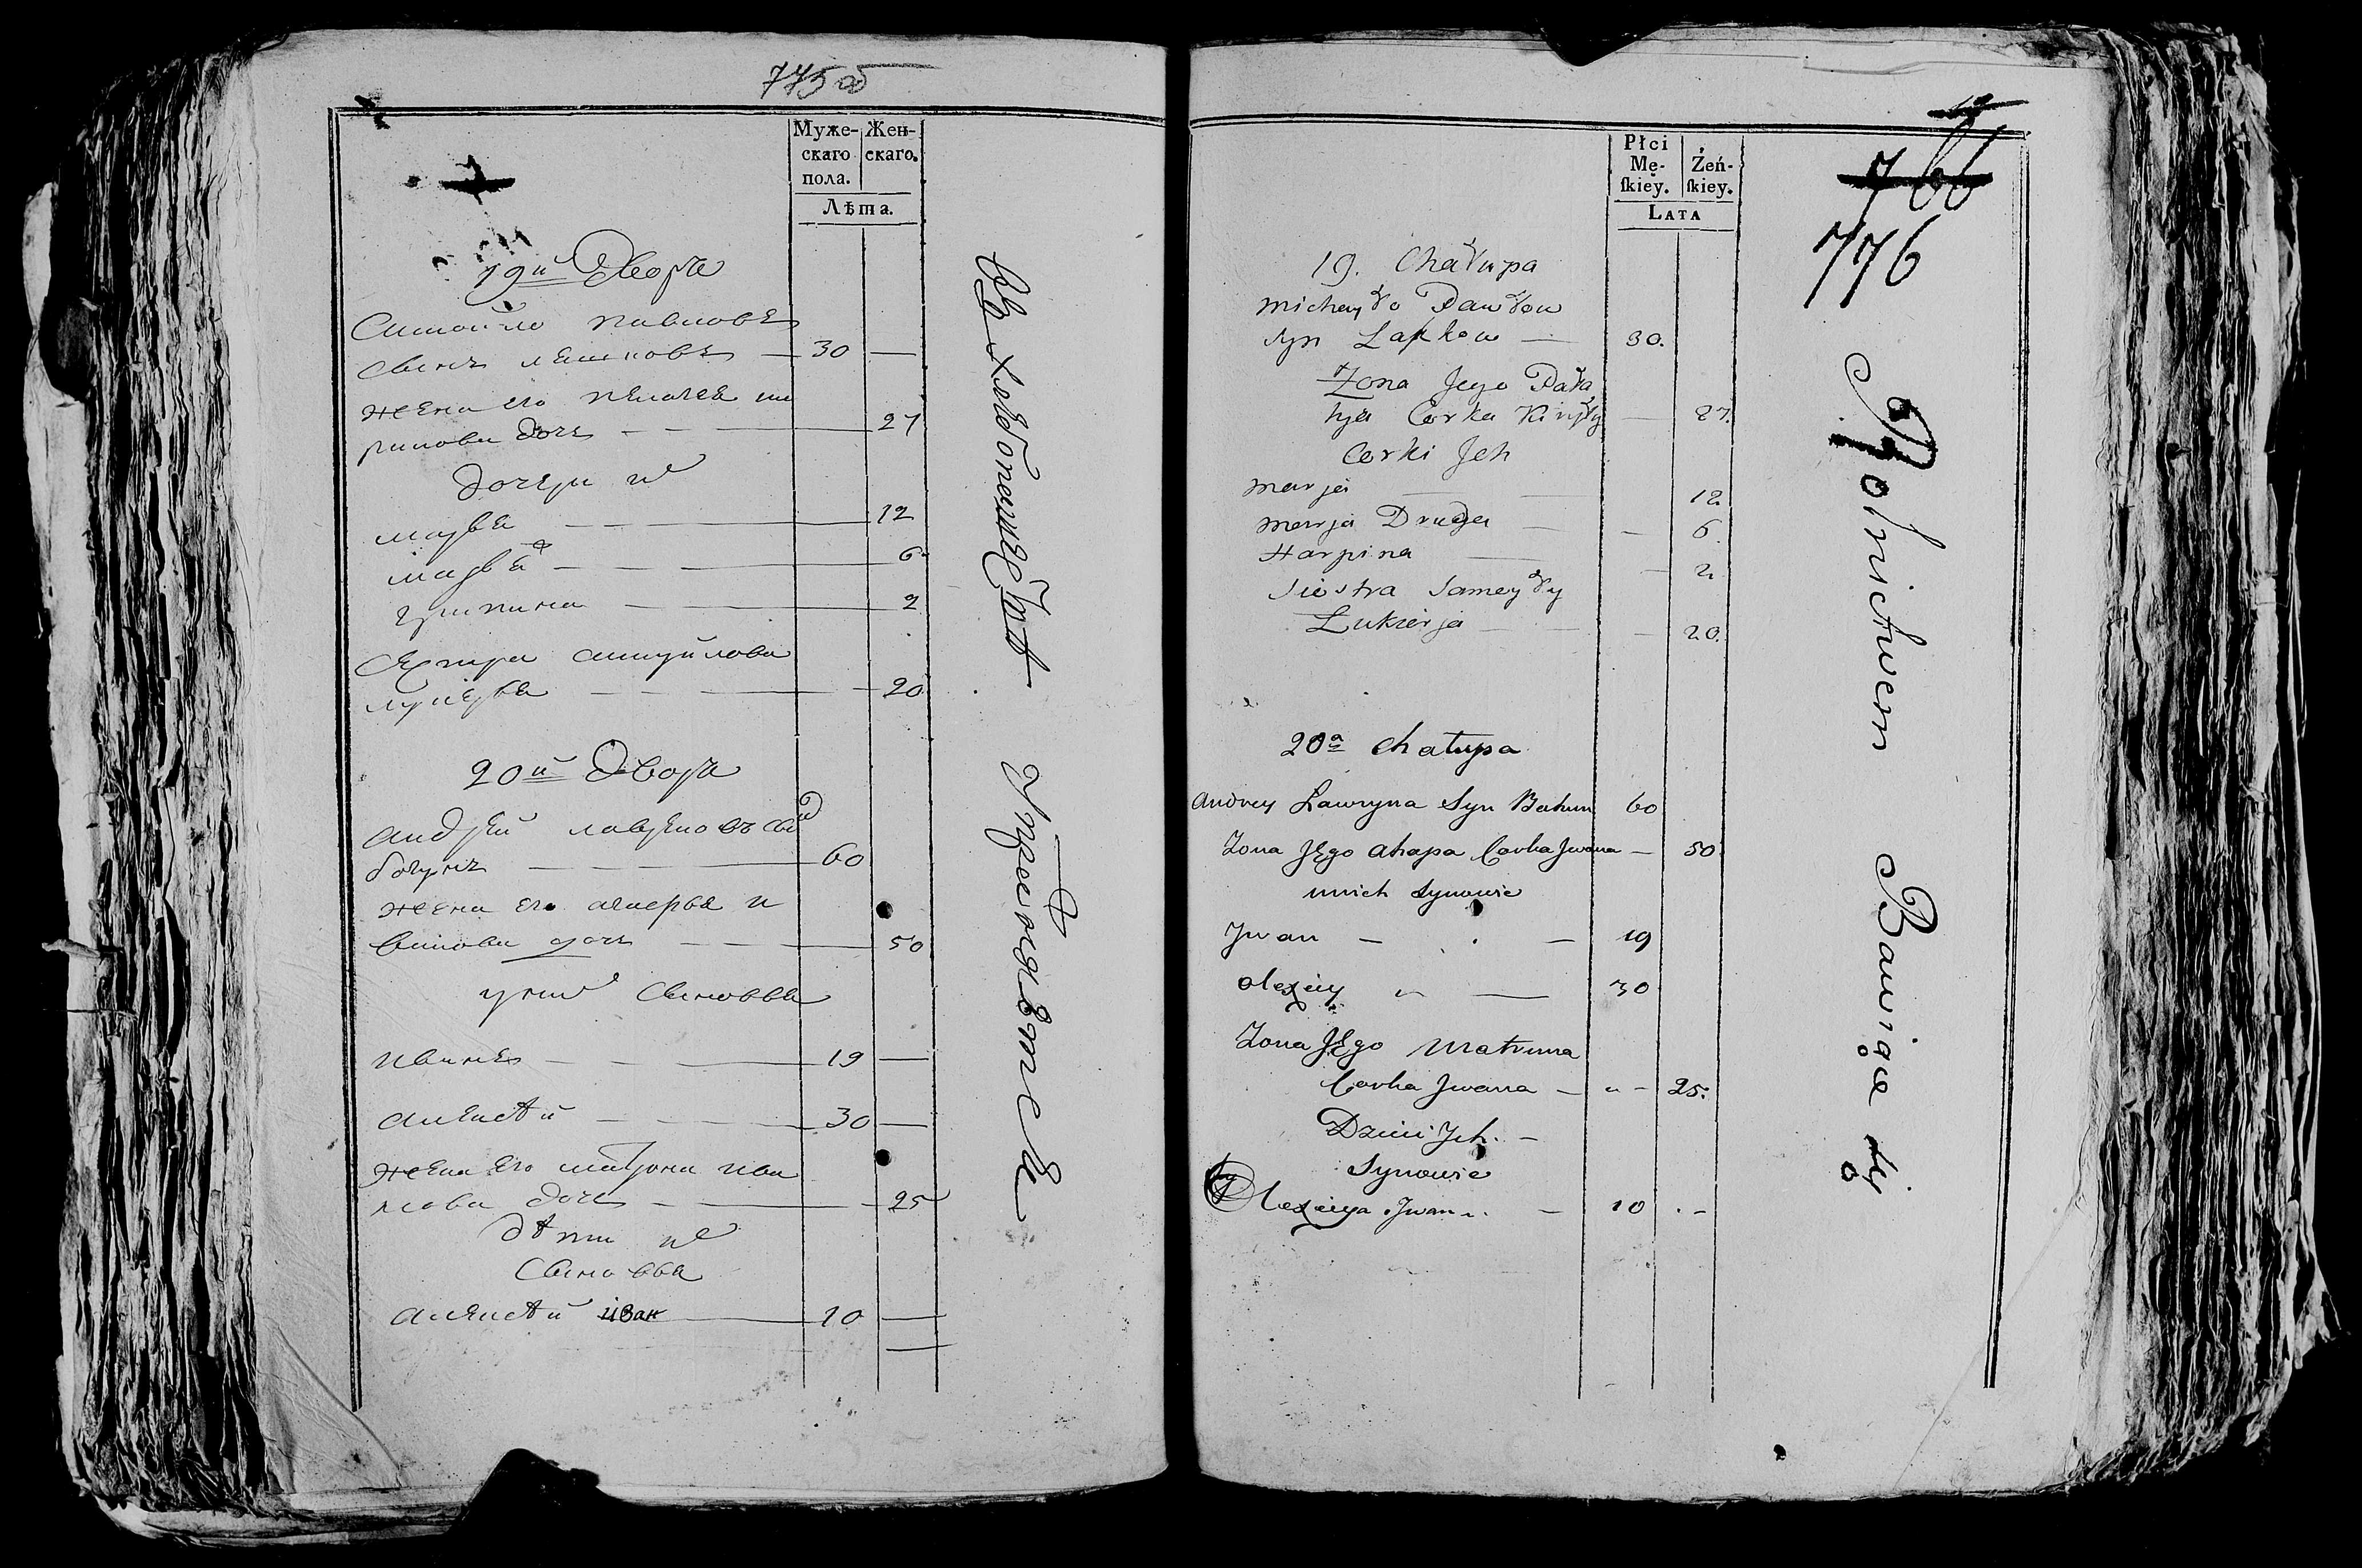 775 об
Муже-
скаго
пола.
Жен-
скаго.
Лѣта.
19й Двора
Самойло павловъ
сынъ лапковъ — 30 —
жена его пелагея ки
рилова дочь — 27
дочери их
марья — 12
марья — 6
грипина — 2
сестра самуйлова
лукерья — 20
20й Двора
андрей лавренов сын
богунъ — 60
жена его агафья и
ванова дочь — 50
у них сыновья
иванъ — 19 —
алексѣй — 30 —
жена его матрона ива
нова дочь — 25
дѣти их
сыновья
алексѣй иван — 10 —
въ хлебопашествѣ
упражняетсе
Płci
Mę-
ſkiey.
Żeń-
ſkiey.
LATA
766
776
19. Chałupa
Michayło Pawłow
Syn Lapkow — 30.
Żona Jego Pała
hya Corka Kiryły — 27.
Corki Jch
Marja — 12
Marja Druga — 6.
Harpina — 2
Siostra Sameyły
Lukierja — 20.
20a Chałupa
Andrey Ławryna Syn Bahun 60
Żona Jego Ahapa Corka Jwana — 50
unich Synowie
Jwan — 19
Olexiey — 30
Żona Jego Matruna
Corka Jwana — 25.
Dzieci Jch. —
Synowie
Olexieya Jwan — 10 . –
Rolnictwem Bawiące się